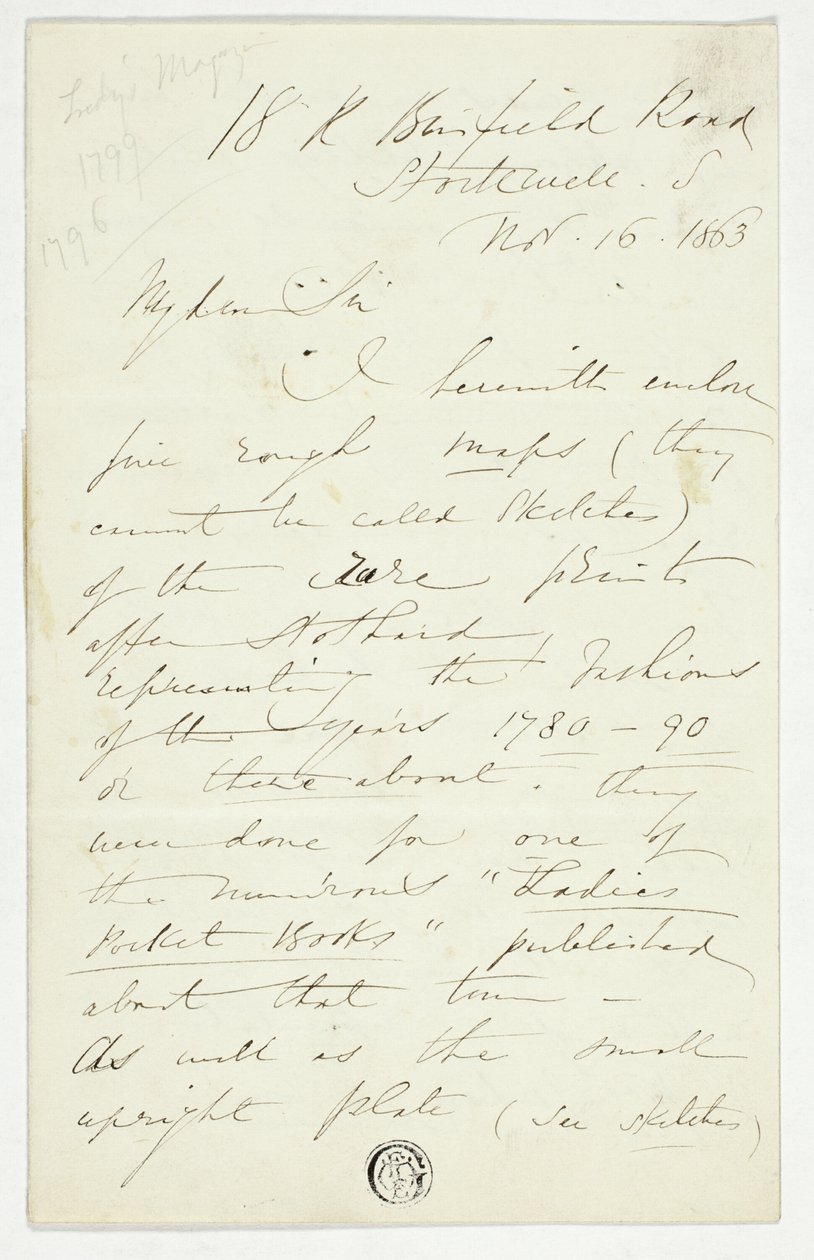 Lady's Magazine
1799
1796
18 R Binfield Road
Stockwell. S
Nov. 16. 1863
My dear Sir
I herewith enclose
five rough maps (they
cannot be called sketches)
of the rare prints
after Stothard,
representing the fashions
of the years 1780 - 90
or thereabout. They
were done for one of
the numerous "Ladies
Pocket Books" published
about that time -
As well as the small
upright plate (see sketches)